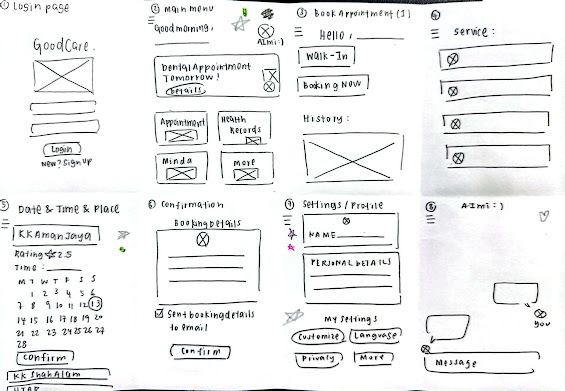 ① Login page
GoodCare.
Login
New? Sign Up
② Main menu
Good morning,
AImi:)
Dental Appointment
Tomorrow!
Details
Appointment
Health
Records
Minda
More
③ Book Appointment (1)
Hello,
Walk-In
Booking Now
History:
④
Service:
⑤ Date & Time & Place
KK Aman Jaya
Rating ☆ 2.5
Time:
M T W T F S S
1 2 3 4 5 6
7 8 9 10 11 12 13
14 15 16 17 18 19 20
21 22 23 24 25 26 27
28
Confirm
KK Shah Alam
⑥ Confirmation
Booking Details
Sent booking details
to email
Confirm
⑦ Settings/Profile
NAME
PERSONAL DETAILS
My Settings
Customize
Language
Privacy
More
⑧ AImi:)
YOU
Message